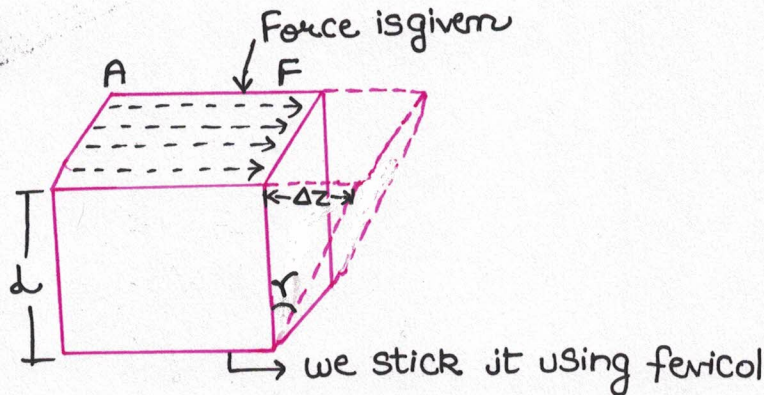 Force is given
A F
ΔZ
d
γ
we stick it using fevicol